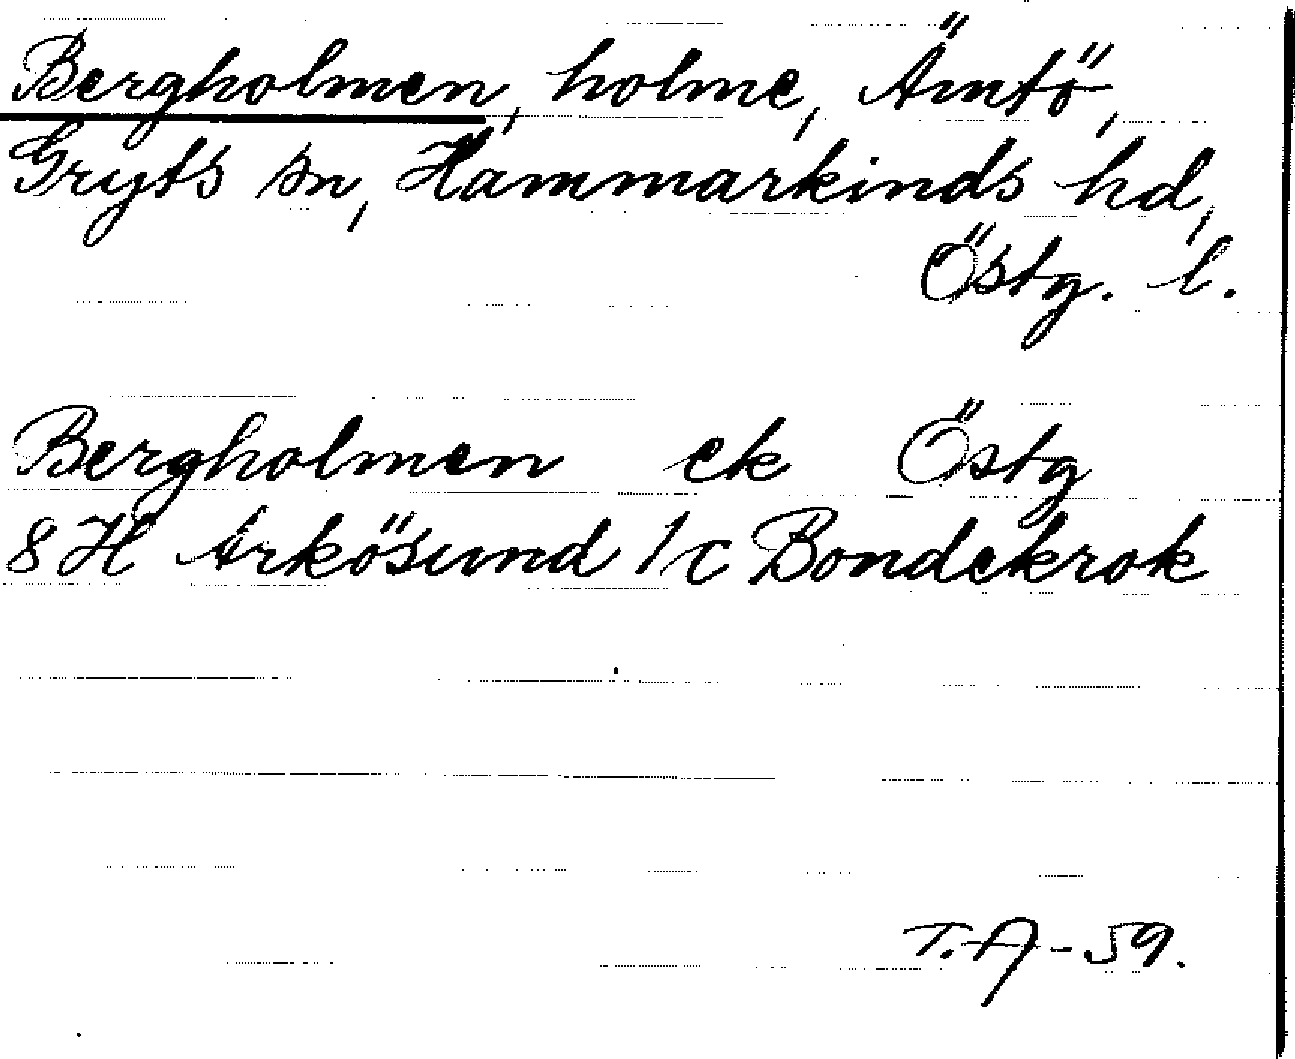 Bergholmen, holme, Ämtö,
Gryts sn, Hammarkinds hd,
Östg. l.
Bergholmen ek Östg
8H Arkösund 1c Bondekrok
T.A-59.